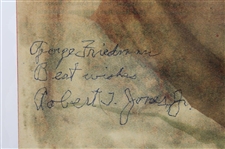 George Friedman
Best wishes
Robert T. Jones Jr.